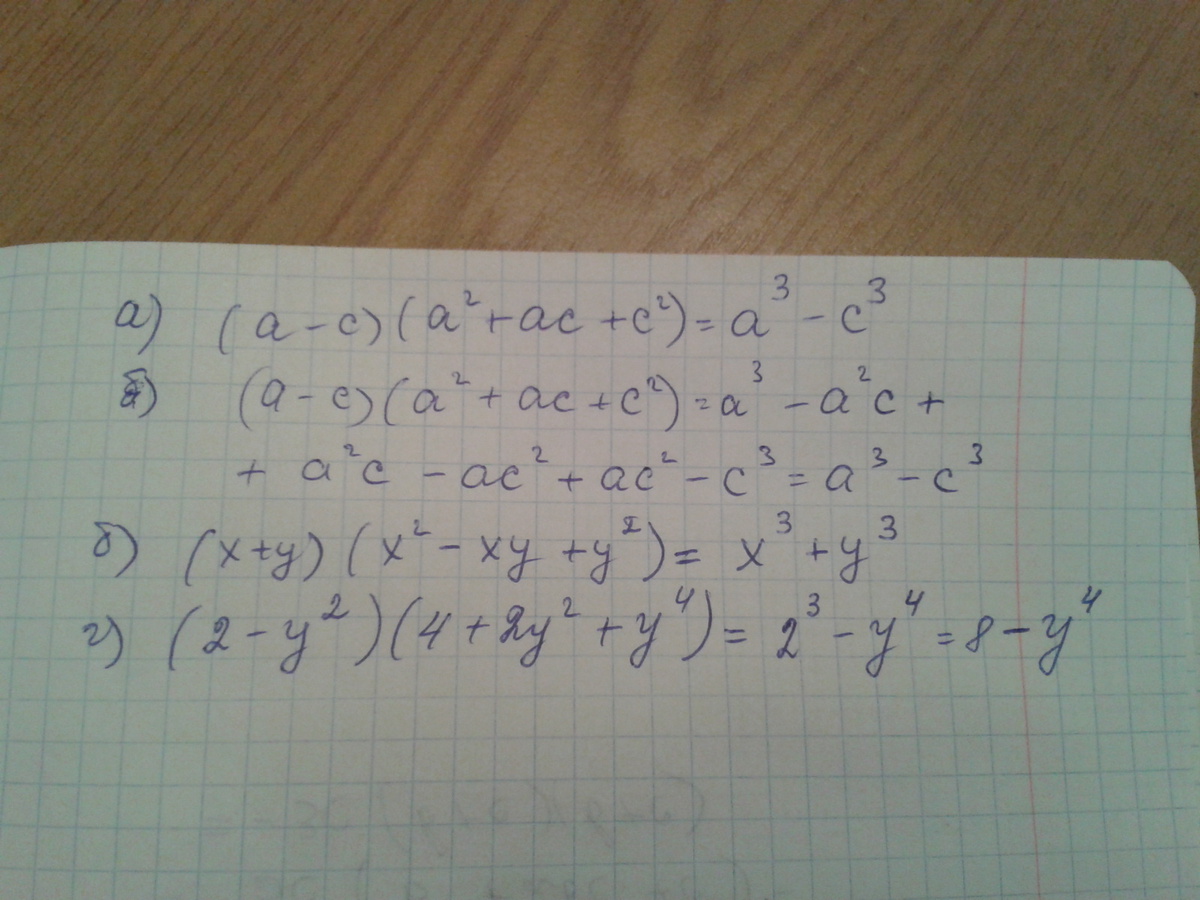 а) (a - c)(a² + ac + c²) = a³ - c³
б) (a - c)(a² + ac + c²) = a³ - a²c +
+ a²c - ac² + ac² - c³ = a³ - c³
б) (x + y)(x² - xy + y²) = x³ + y³
г) (2 - y²)(4 + 2y² + y⁴) = 2³ - y⁴ = 8 - y⁴